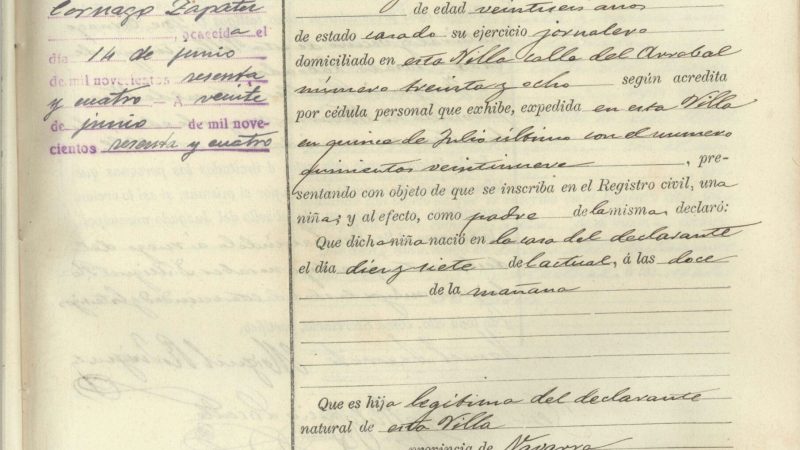 Cornago Zapater
, ocurrida el
día 14 de junio
de mil novecientos sesenta
y cuatro - A veinte
de junio de mil nove-
cientos sesenta y cuatro
de edad veintiseis años
de estado casado su ejercicio jornalero
domiciliado en esta Villa calle del Arrabal
número treinta y ocho según acredita
por cédula personal que exhibe, expedida en esta Villa
en quince de Julio último con el numero
quinientos veintinueve, pre-
sentando con objeto de que se inscriba en el Registro civil, una
niña; y al efecto, como padre de la misma, declaró:
Que dicha niña nació en la casa del declarante
el día diez y siete del actual, á las doce
de la mañana
Que es hija legitima del declarante
natural de esta Villa
provincia de Navarra